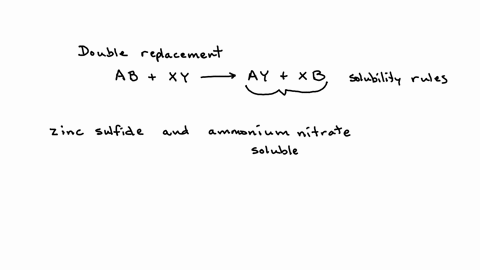 Double replacement
AB + XY → AY + XB solubility rules
zinc sulfide and ammonium nitrate
soluble